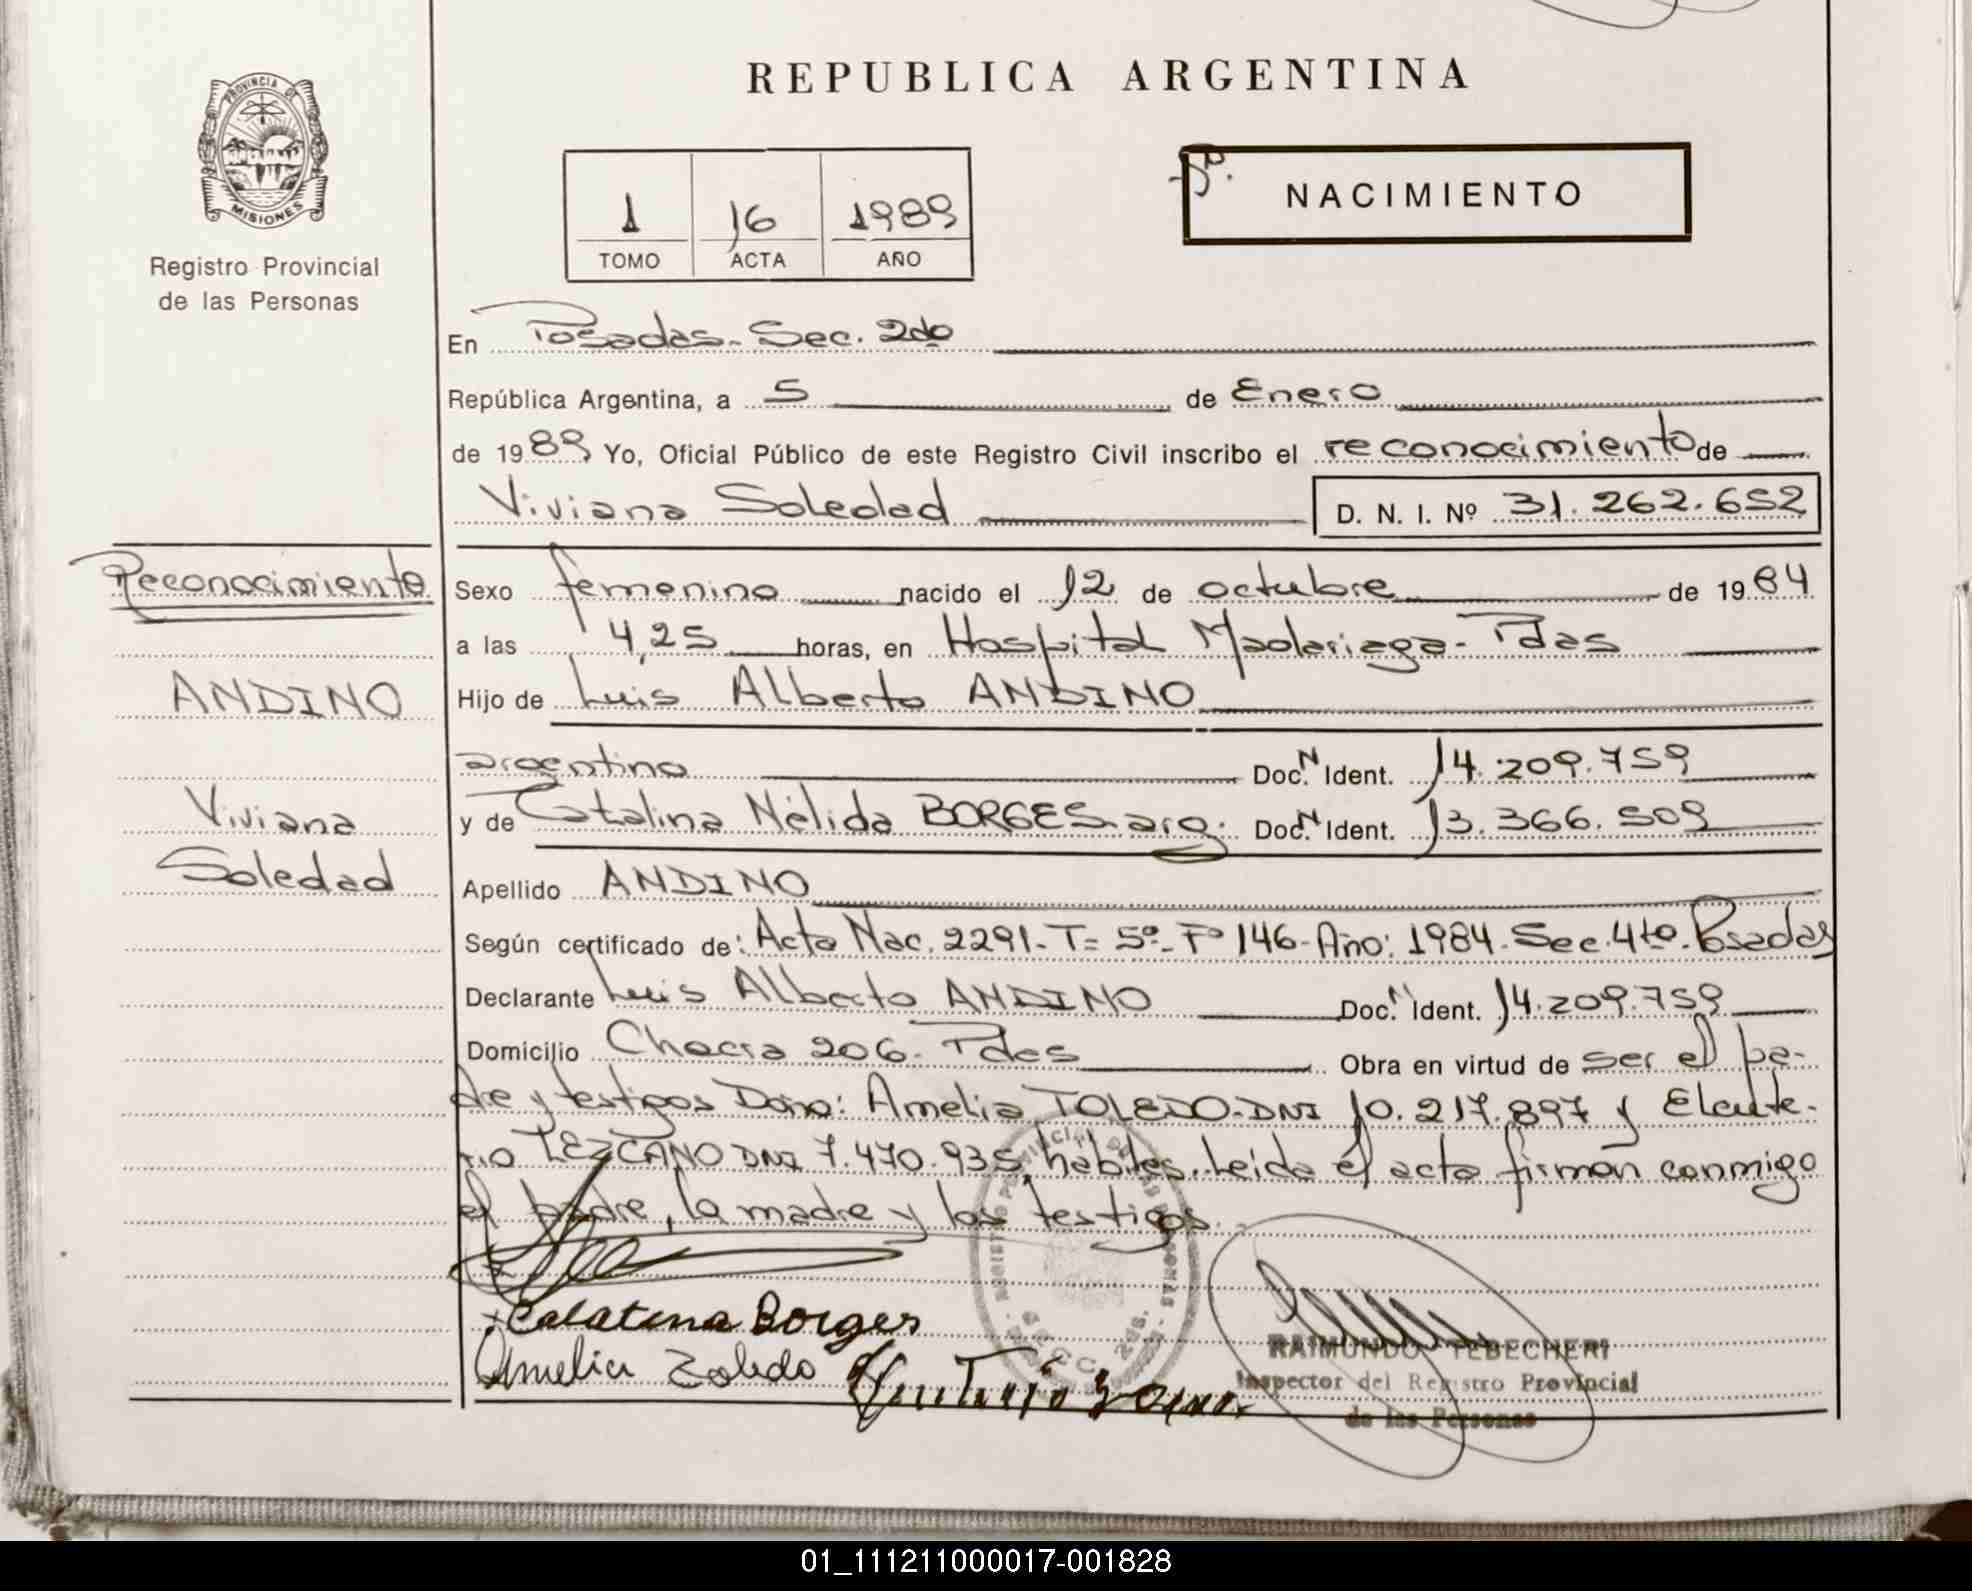 REPUBLICA ARGENTINA
PROVINCIA DE
MISIONES
Registro Provincial
de las Personas
1 16 1989
TOMO ACTA AÑO
NACIMIENTO
En Posadas - Sec. 2do
República Argentina, a 5 de Enero
de 1989 Yo, Oficial Público de este Registro Civil inscribo el reconocimiento de
Viviana Soledad D. N. I. Nº 31.262.652
Reconocimiento
ANDINO
Viviana
Soledad
Sexo femenino nacido el 12 de octubre de 1984
a las 4,25 horas, en Hospital Madariaga - Pdas
Hijo de Luis Alberto ANDINO
argentino Doc. N Ident. 14.209.759
y de Catalina Nélida BORGES - arg. Doc. N Ident. 13.366.509
Apellido ANDINO
Según certificado de: Acta Nac. 2291 - T= 5º - Fº 146 - Año: 1984 - Sec. 4to - Posadas
Declarante Luis Alberto ANDINO Doc. N Ident. 14.209.759
Domicilio Chacra 206 - Pdas Obra en virtud de ser el pa-
dre y testigos Doña: Amelia TOLEDO - DNI 10.217.897 y Eleute-
rio LEZCANO DNI 7.470.935, hábiles. Leida el acta firman conmigo
el padre, la madre y los testigos.
Catalina Borges
Amelia Toledo
RAIMUNDO TEBECHERI
Inspector del Registro Provincial
de las Personas
01_111211000017-001828